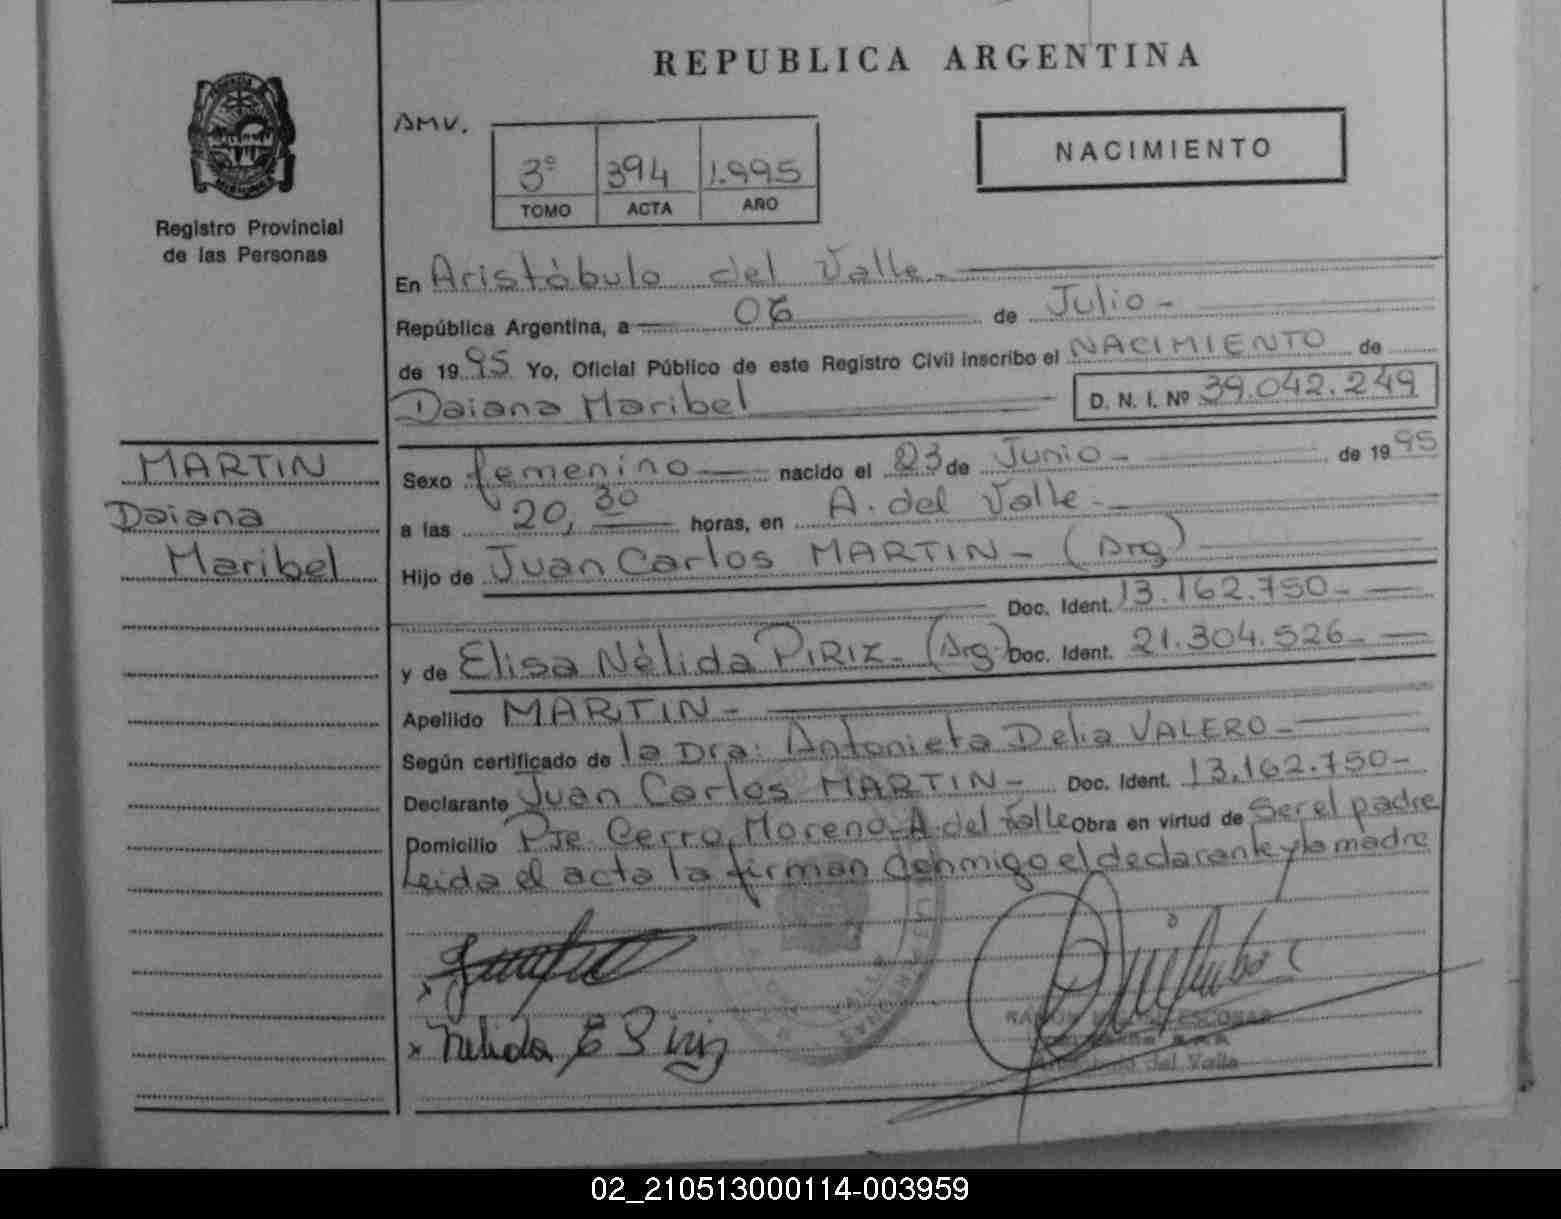 REPUBLICA ARGENTINA
Registro Provincial
de las Personas
AMV.
3º 394 1.995
TOMO ACTA AÑO
NACIMIENTO
En Aristóbulo del Valle.
República Argentina, a 06 de Julio -
de 1995 Yo, Oficial Público de este Registro Civil inscribo el NACIMIENTO de
Daiana Maribel D. N. I. Nº 39.042.249
MARTIN
Daiana
Maribel
Sexo femenino nacido el 23 de Junio - de 1995
a las 20,30 horas, en A. del Valle -
Hijo de Juan Carlos MARTIN - (Arg)
Doc. Ident. 13.162.750 -
y de Elisa Nélida PIRIZ - (Arg.) Doc. Ident. 21.304.526 -
Apellido MARTIN -
Según certificado de la Dra: Antonieta Delia VALERO -
Declarante Juan Carlos MARTIN - Doc. Ident. 13.162.750 -
Domicilio Pje. Cerro Moreno - A. del Valle Obra en virtud de Ser el padre
Leida el acta la firman conmigo el declarante y la madre
x
x Nelida E Piriz
ESCOBAR
del Valle
02_210513000114-003959